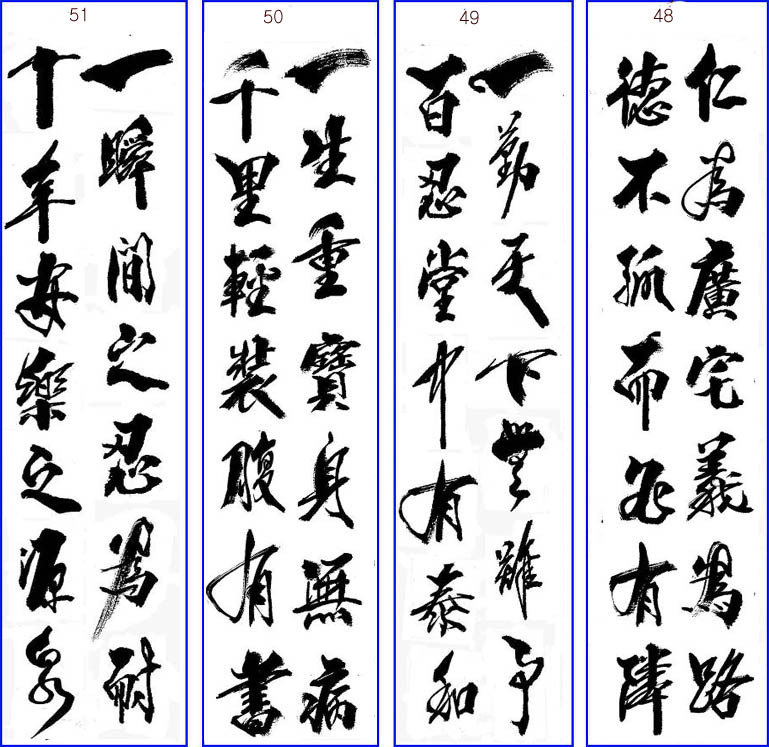 48
仁為廣宅義爲路
德不孤而必有隣
49
一勤天下無難事
百忍堂中有泰和
50
一生重寶身無病
千里輕裝腹有書
51
一瞬間之忍爲耐
十年安樂之源泉